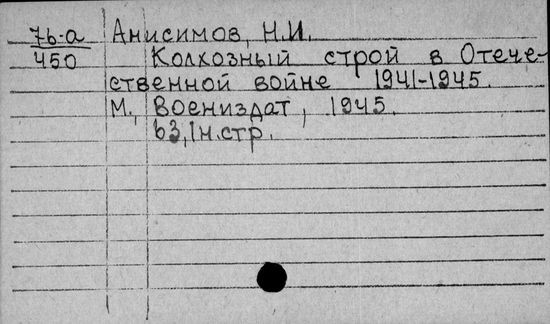 76-а Анисимов, Н.И.
450 Колхозный строй в Отече-
ственной войне 1941-1945.
М., Воениздат, 1945.
63,1н.стр.